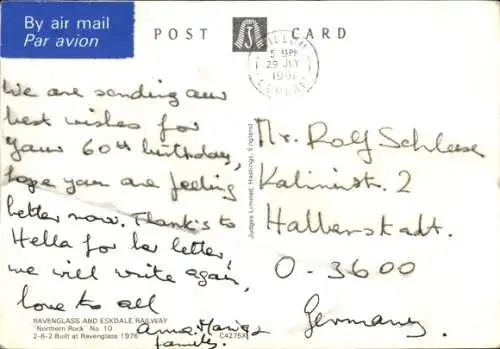 By air mail
Par avion
POST CARD
5 PM
29 JLY
1991
We are sending our
best wishes for
your 60th birthday,
hope you are feeling
better now. Thank's to
Hella for her letter,
we will write again,
love to all
Anna
family.
Judges Limited, Hastings, England
Mr. Rolf Schleese
Kalininstr. 2
Halberstadt.
O-3600
Germany.
RAVENGLASS AND ESKDALE RAILWAY
"Northern Rock" No. 10
2-6-2 Built at Ravenglass 1976
C4275X